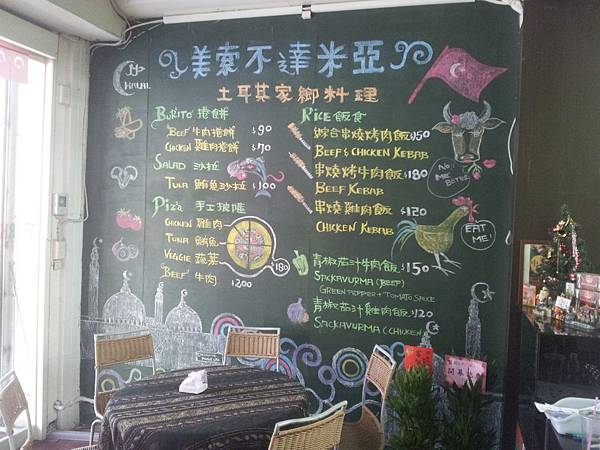 美索不達米亞
土耳其家鄉料理
HALAL
BURITO 捲餅
"BEEF" 牛肉捲餅 $90
CHICKEN 雞肉捲餅 $70
SALAD 沙拉
TUNA 鮪魚沙拉 $100
PIZA 手工披薩
CHICKEN 雞肉
TUNA 鮪魚
VEGGIE 蔬菜
180
"BEEF" 牛肉 $200
RICE 飯食
綜合串燒烤肉飯 $150
BEEF & CHICKEN KEBAB
串燒烤牛肉飯 $180
BEEF KEBAB
串燒雞肉飯 $120
CHICKEN KEBAB
青椒茄汁牛肉飯 $150
SACKAVURMA (BEEF)
GREEN PEPPER + TOMATO SAUCE
青椒茄汁雞肉飯 $120
SACKAVURMA (CHICKEN)
NO! ME BETTER!
EAT ME!